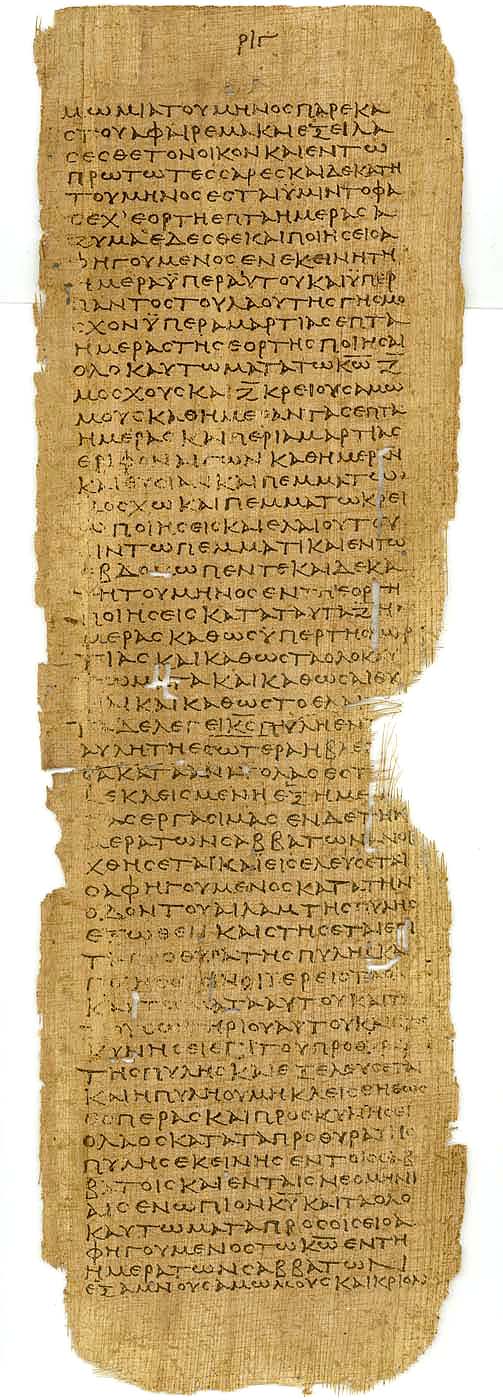 ΡΙΓ
ΜΩΜΙΑΤΟΥΜΗΝΟϹΠΑΡΕΚΑ
ϹΤΟΥΑΦΑΙΡΕΜΑΚΑΙΕΞΕΙΛΑ
ϹΕϹΘΕΤΟΝΟΙΚΟΝΚΑΙΕΝΤΩ
ΠΡΩΤΩΤΕϹϹΑΡΕϹΚΑΙΔΕΚΑΤΗ
ΤΟΥΜΗΝΟϹΕϹΤΑΙΥΜΙΝΤΟΦΑ
ϹΕΧ’ΕΟΡΤΗΕΠΤΑΗΜΕΡΑϹΑ
ΖΥΜΑΕΔΕϹΘΕΚΑΙΠΟΙΗϹΕΙΟΑ
ΦΗΓΟΥΜΕΝΟϹΕΝΕΚΕΙΝΗΤΗ
ΗΜΕΡΑΫΠΕΡΑΥΤΟΥΚΑΙΫΠΕΡ
ΠΑΝΤΟϹΤΟΥΛΑΟΥΤΗϹΓΗϹΜΟ
ϹΧΟΝΫΠΕΡΑΜΑΡΤΙΑϹΕΠΤΑ
ΗΜΕΡΑϹΤΗϹΕΟΡΤΗϹΠΟΙΗϹΑΙ
ΟΛΟΚΑΥΤΩΜΑΤΑΤΩΚ̅Ω̅Ζ̅
ΜΟϹΧΟΥϹΚΑΙΖ̅ΚΡΕΙΟΥϹΑΜΩ
ΜΟΥϹΚΑΘΗΜΕΡΑΝΤΑϹΕΠΤΑ
ΗΜΕΡΑϹΚΑΙΠΕΡΙΑΜΑΡΤΙΑϹ
ΕΡΙΦΟΝΑΙΓΩΝΚΑΘΗΜΕΡΑΝ
ΚΑΙΘΥϹΙΑΝΚΑΙΠΕΜΜΑΤΩ
ΜΟϹΧΩΚΑΙΠΕΜΜΑΤΩΚΡΕΙ
ΩΠΟΙΗϹΕΙϹΚΑΙΕΛΑΙΟΥΤΟΥ
ΙΝΤΩΠΕΜΜΑΤΙΚΑΙΕΝΤΩ
ΕΒΔΟΜΩΠΕΝΤΕΚΑΙΔΕΚΑ
ΤΗΤΟΥΜΗΝΟϹΕΝΤΗΕΟΡΤΗ
ΠΟΙΗϹΕΙϹΚΑΤΑΤΑΥΤΑΖ̅Η
ΜΕΡΑϹΚΑΘΩϹΥΠΕΡΤΗϹΑΜΑΡ
ΤΙΑϹΚΑΙΚΑΘΩϹΤΑΟΛΟΚΑΥ
ΤΩΜΑΤΑΚΑΙΚΑΘΩϹΑΙΘΥ
ϹΙΑΙΚΑΙΚΑΘΩϹΤΟΕΛΑΙ
ΤΑΔΕΛΕΓΕΙΚ̅Ϲ̅ΠΥΛΗΕΝ
ΑΥΛΗΤΗΕϹΩΤΕΡΑΗΒΛΕ
ΑΚΑΤΑΑΝΑΤΟΛΑϹΕϹΤ
ΚΕΚΛΕΙϹΜΕΝΗΕΞΗΜΕ
ΡΑϹΕΡΓΑϹΙΜΑϹΕΝΔΕΤΗ
ΗΜΕΡΑΤΩΝϹΑΒΒΑΤΩΝΑΝΟΙ
ΧΘΗϹΕΤΑΙΚΑΙΕΙϹΕΛΕΥϹΕΤΑΙ
ΟΑΦΗΓΟΥΜΕΝΟϹΚΑΤΑΤΗΝ
ΟΔΟΝΤΟΥΑΙΛΑΜΤΗϹΠΥΛΗϹ
ΕΞΩΘΕΝΚΑΙϹΤΗϹΕΤΑΙΕΠΙ
ΤΑΠΡΟΘΥΡΑΤΗϹΠΥΛΗϹΚΑΙ
ΠΟΙΗϹΟΥϹΙΝΟΙΪΕΡΕΙϹΤΑΟΛΟ
ΚΑΥΤΩΜΑΤΑΑΥΤΟΥΚΑΙΤΑ
ΤΟΥϹΩΤΗΡΙΟΥΑΥΤΟΥΚΑΙΠΡΟϹ
ΚΥΝΗϹΕΙΕΠΙΤΟΥΠΡΟΘΥΡΟΥ
ΤΗϹΠΥΛΗϹΚΑΙΕΞΕΛΕΥϹΕΤΑΙ
ΚΑΙΗΠΥΛΗΟΥΜΗΚΛΕΙϹΘΗΕΩϹ
ΕϹΠΕΡΑϹΚΑΙΠΡΟϹΚΥΝΗϹΕΙ
ΟΛΑΟϹΚΑΤΑΤΑΠΡΟΘΥΡΑΤΗϹ
ΠΥΛΗϹΕΚΕΙΝΗϹΕΝΤΟΙϹϹΑΒ
ΒΑΤΟΙϹΚΑΙΕΝΤΑΙϹΝΕΟΜΗΝΙ
ΑΙϹΕΝΩΠΙΟΝΚ̅Υ̅ΚΑΙΤΑΟΛΟ
ΚΑΥΤΩΜΑΤΑΠΡΟϹΟΙϹΕΙΟΑ
ΦΗΓΟΥΜΕΝΟϹΤΩΚ̅Ω̅ΕΝΤΗ
ΗΜΕΡΑΤΩΝϹΑΒΒΑΤΩΝ
ΕΞΑΜΝΟΥϹΑΜΩΜΟΥϹΚΑΙΚΡΙΟΝ